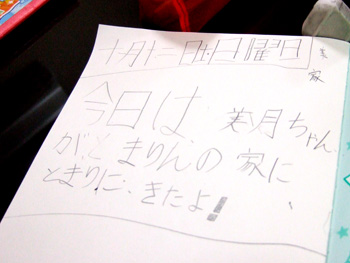 十月十二日日曜日
家
今日は、実月ちゃん
が、とまりんの家に
とまりに、きたよ!